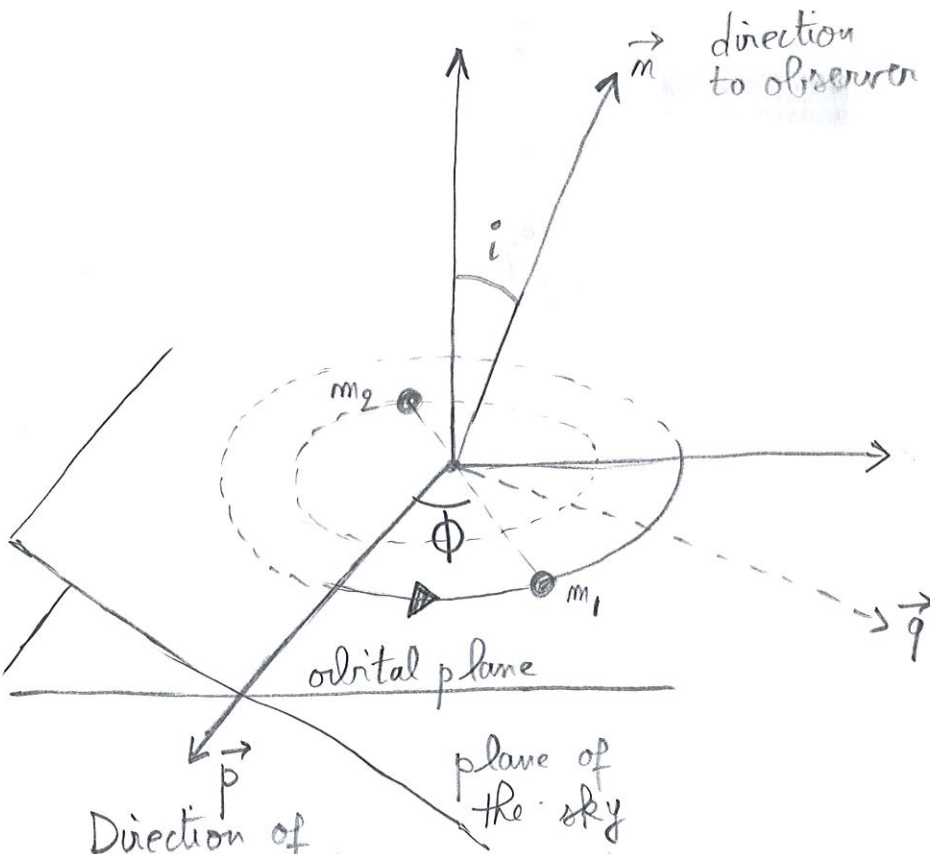 direction
to observer
n
i
m2
ϕ
m1
q
orbital plane
p
plane of
the sky
Direction of